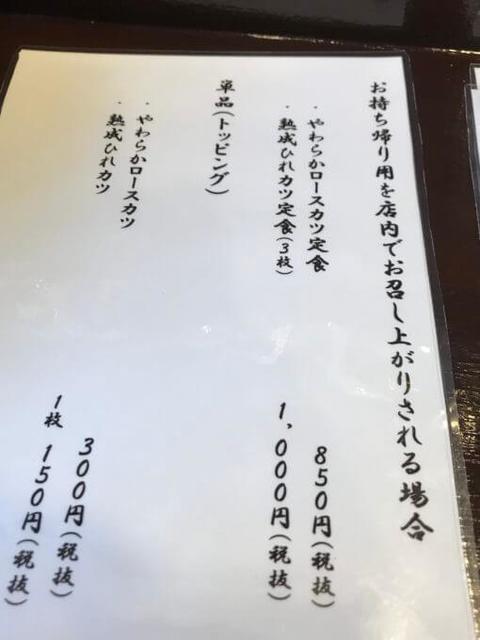 お持ち帰り用を店内でお召し上がりされる場合
・やわらかロースカツ定食 850円(税抜)
・熟成ひれカツ定食(3枚) 1,000円(税抜)
単品(トッピング)
・やわらかロースカツ 300円(税抜)
・熟成ひれカツ 1枚 150円(税抜)